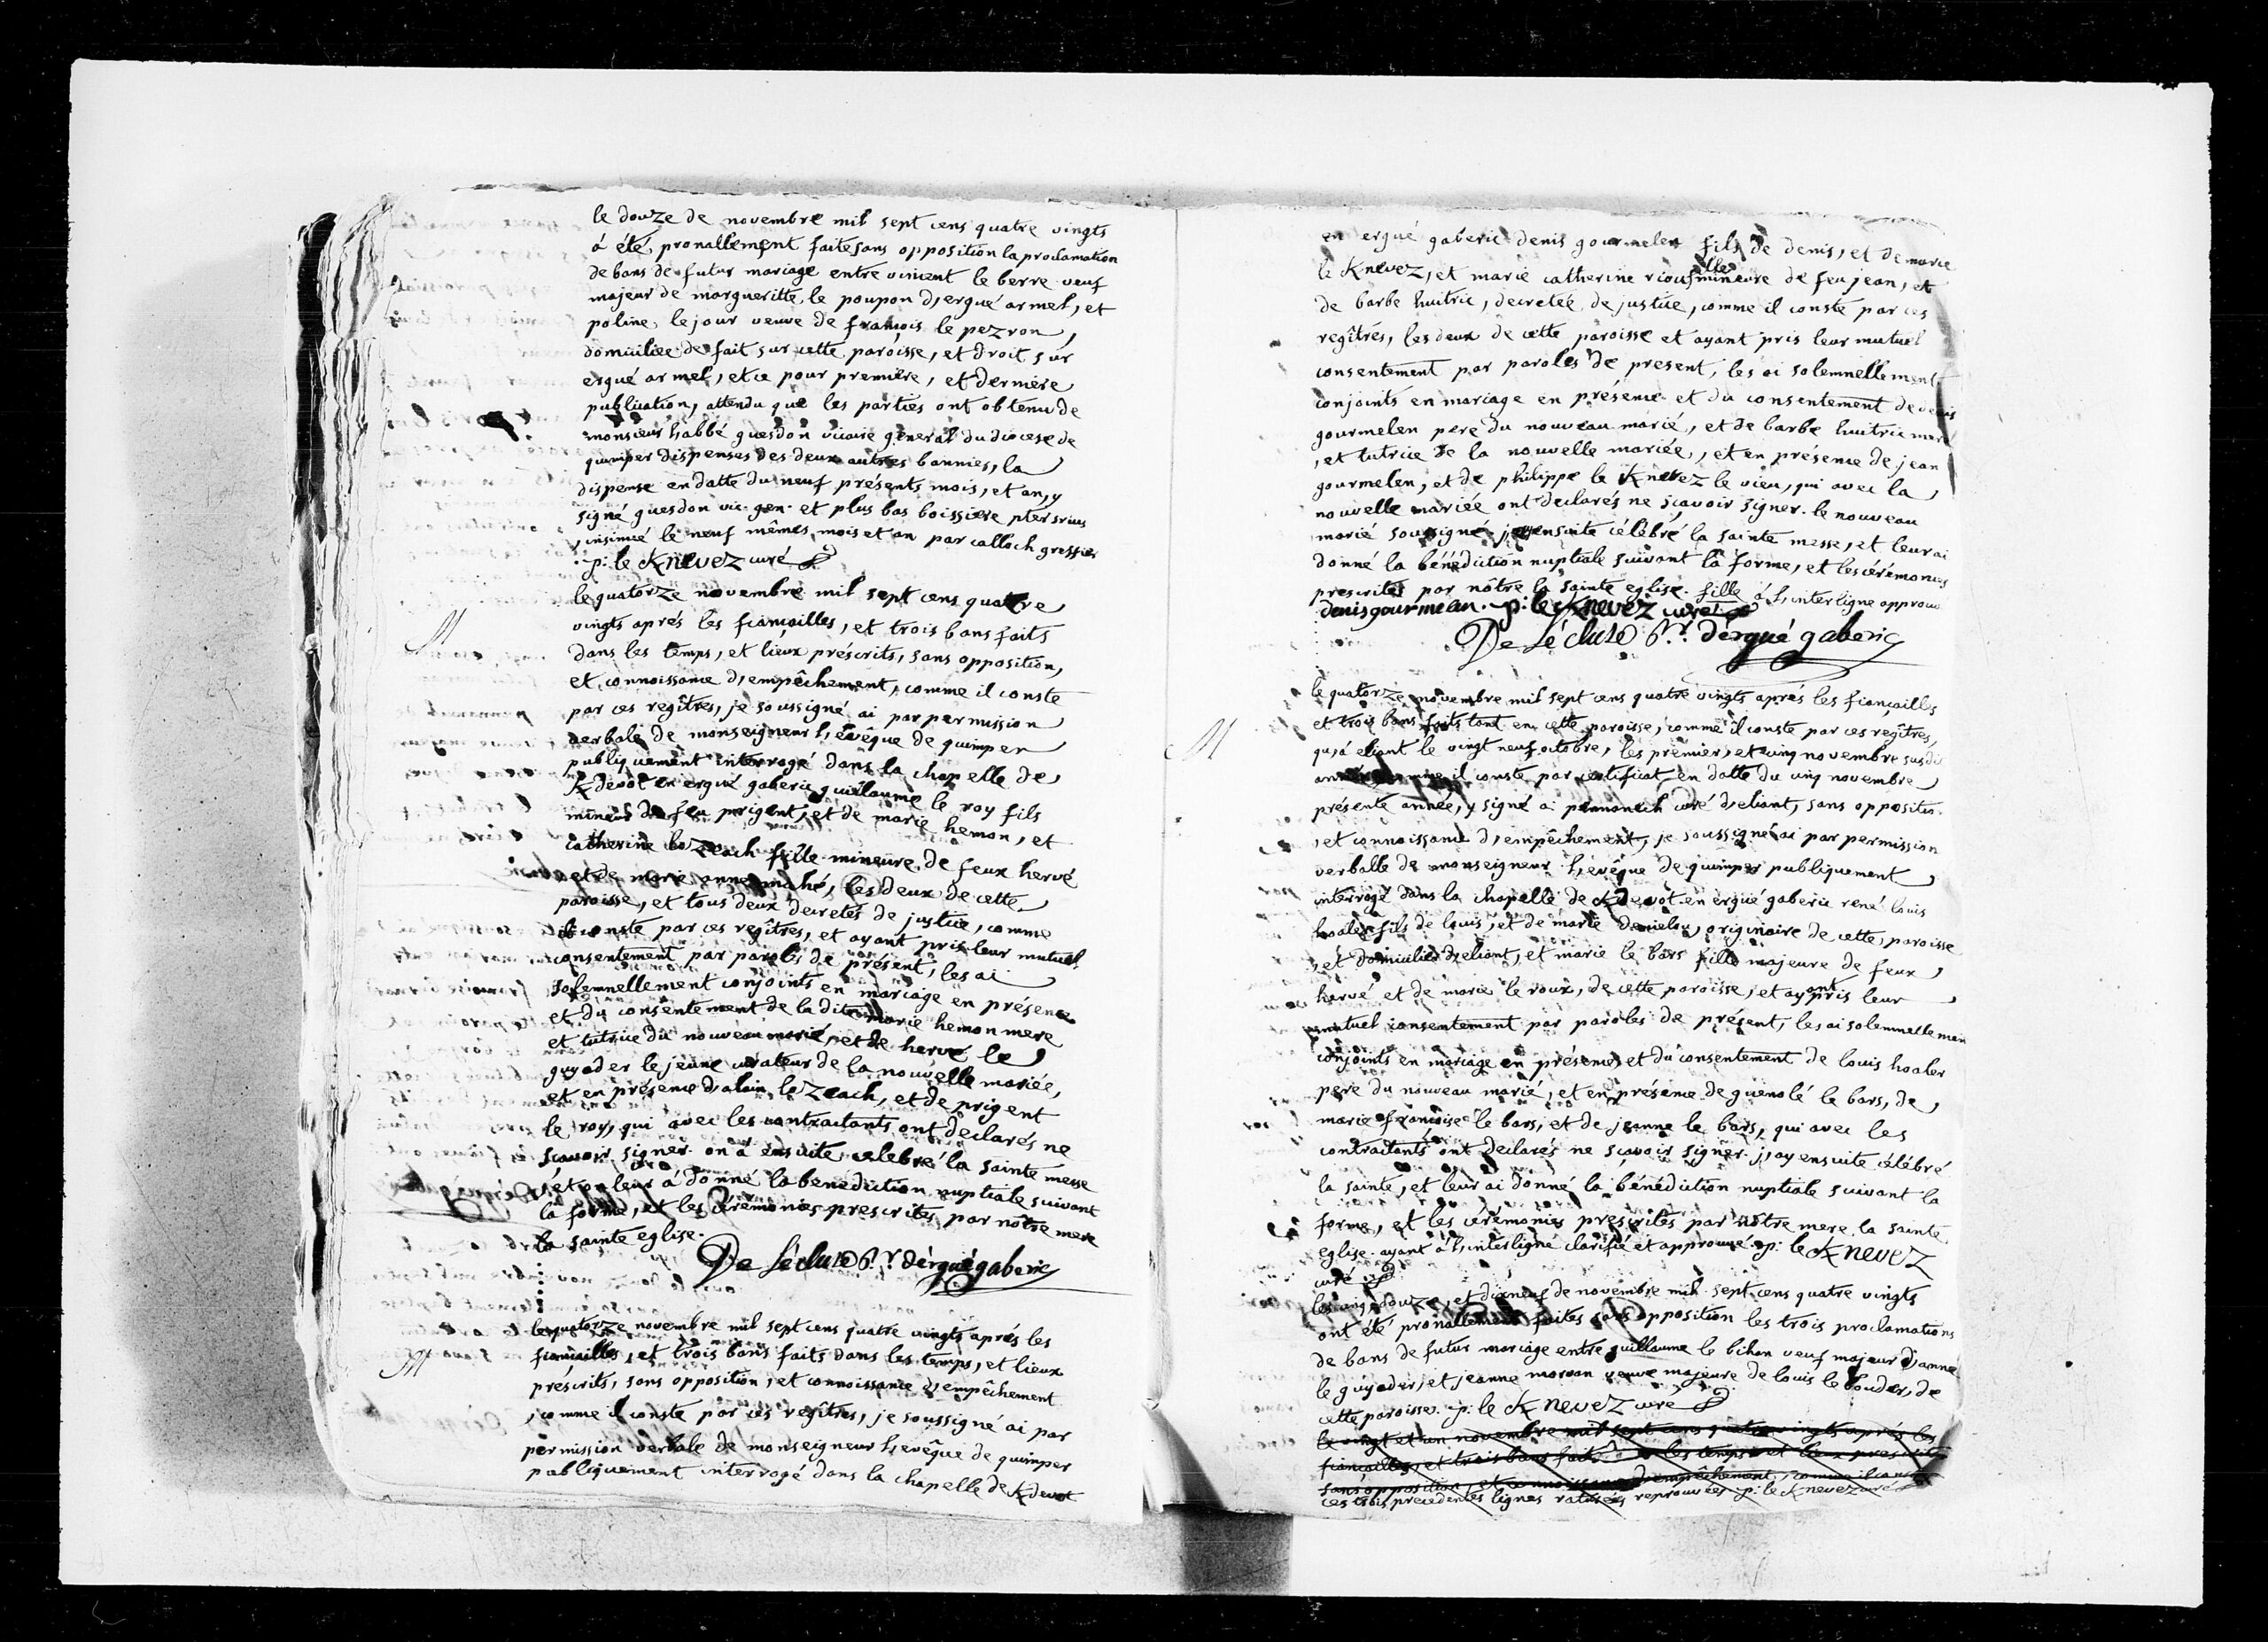 le douze de novembre mil sept cens quatre vingts
á été pronallement faite sans opposition la proclamation
de bans de futur mariage entre vincent le berre veuf
majeur de margueritte le poupon d,ergué armel, et
poline le jour veuve de françois le pezron,
domiciliée de fait sur cette paroisse, et droit sur
ergué armel, et ce pour premiere, et derniere
publication, attendu que les parties ont obtenu de
monsieur l,abbé guesdon vicaire général du diocese de
quimper dispenses des deux autres bannies, la
dispense en datte du neuf présents mois, et an, y
signé guesdon vic. gen. et plus bas boissiere pter srius
, insinué le neuf mêmes mois et an par calloch greffier
p: le Knevez curé
M
le quatorze novembre mil sept cens quatre
vingts aprés les fiançailles, et trois bans faits
dans les temps, et lieux préscrits, sans opposition,
et connoissance d,empêchement, comme il conste
par ces regîtres, je soussigné ai par permission
verbale de monseigneur l,évêque de quimper
publiquement interrogé dans la chapelle de
Kdevot en ergué gaberic guillaume le roy fils
mineur de feu prigent, et de marie hemon, et
catherine lozeach fille mineure de feux hervé
et de marie anne mahé, les deux de cette
paroisse, et tous deux decretés de justice, comme
il conste par ces regîtres, et ayant pris leur mutuel
consentement par paroles de présent, les ai
solemnellement conjoints en mariage en présence
et du consentement de la dite marie hemon mere
et tutrice du nouveau marié, et de hervé le
guyader le jeune curateur de la nouvelle mariée,
et en présence d,alain lozeach, et de prigent
le roy, qui avec les contractants ont declarés ne
sçavoir signer. on á ensuite celebré la sainte messe
, et on leur á donné la benediction nuptiale suivant
la forme, et les cérémonies prescrites par nôtre mere
la sainte eglise.
De Lécluse Rr. d'ergué gaberic
M
le quatorze novembre mil sept cens quatre vingts aprés les
fiançailles, et trois bans faits dans les temps, et lieux
préscrits, sans opposition, et connoissance d,empêchement
, comme il conste par ces regîtres, je soussigné ai par
permission verbale de monseigneur l,evêque de quimper
publiquement interrogé dans la chapelle de Kdevot
en ergué gaberic denis gourmelen fils de denis, et de marie
le Knevez, et marie catherine riou fille mineure de feu jean, et
de barbe huitric, decretée de justice, comme il conste par ces
regîtres, les deux de cette paroisse et ayant pris leur mutuel
consentement par paroles de present, les ai solemnellement
conjoints en mariage en présence et du consentement de denis
gourmelen pere du nouveau marié, et de barbe huitric mere
, et tutrice de la nouvelle mariée, et en présence de jean
gourmelen, et de philippe le Knevez le vieu, qui avec la
nouvelle mariée ont declarés ne sçavoir signer. le nouveau
marié soussigné. j,ai ensuite célébré la sainte messe, et leur ai
donné la bénédiction nuptiale suivant la forme, et les cérémonies
prescrites par nôtre la sainte eglise. fille á l,interligne approuvé
denis gourmelen. p: le Knevez curé
De Lécluse Rr. d'ergué gaberic
M
le quatorze novembre mil sept cens quatre vingts aprés les fiançailles
et trois bans faits tant en cette paroisse, comme il conste par ces regîtres,
qu,á eliant le vingt neuf octobre, les premier, et cinq novembre susdite
année comme il conste par certificat en datte du cinq novembre
présente année, y signé a: pennanech curé d,eliant, sans opposition
, et connoissance d,empêchement, je soussigné ai par permission
verballe de monseigneur l,évêque de quimper publiquement
interrogé dans la chapelle de Kdevot en ergué gaberic rené louis
hoaler fils de louis, et de marie, originaire de cette paroisse
, et domicilié d,eliant, et marie le bars fille majeure de feux
hervé et de marie le roux, de cette paroisse, et ayant pris leur
mutuel consentement par paroles de présent, les ai solemnellemen
conjoints en mariage en présence et du consentement de louis hoaler
pere du nouveau marié, et en présence de guenolé le bars, de
marie françoise le bars, et de jeanne le bars, qui avec les
contractants ont declarés ne sçavoir signer. j,ay ensuite célébré
la sainte, et leur ai donné la bénédiction nuptiale suivant la
forme, et les cérémonies prescrites par nôtre mere la sainte
eglise. ayant á l,interligne clarifié et approuvé. p: le Knevez
curé
les cinq, douze, et dixneuf de novembre mil sept cens quatre vingts
ont été pronallement faites sans opposition les trois proclamations
de bans de futur mariage entre guillaume le bihan veuf majeur d,anne
le guyader, et jeanne morvan veuve majeure de louis le bouder, de
cette paroisse. p: le Knevez curé
le vingt et un novembre mil sept cens quatre vingts aprés les
fiançailles, et trois bans faits dans les temps, et lieux prescrits
sans opposition, et connoissance d,empêchement, comme il conste
ces trois précédentes lignes raturées reprouvées p: le Knevez curé